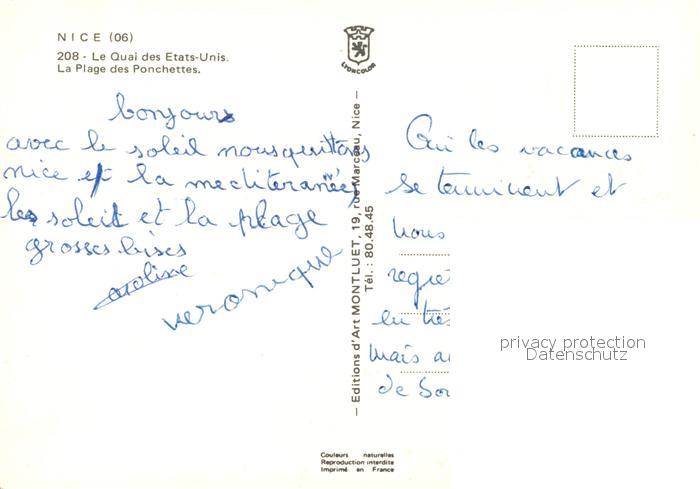 NICE (06)
208 - Le Quai des Etats-Unis.
La Plage des Ponchettes.
LYONCOLOR
bonjours
avec le soleil nous quittons
nice et la mediteranée,
les soleil et la plage
grosses bises
caroline
veronique
— Editions d'Art MONTLUET, 19, rue Marceau, Nice —
Tél. : 80.48.45
Oui les vacances
se terminent et
nous
regre
en très
mais a
de bon
privacy protection
Datenschutz
Couleurs naturelles
Reproduction interdite
Imprimé en France